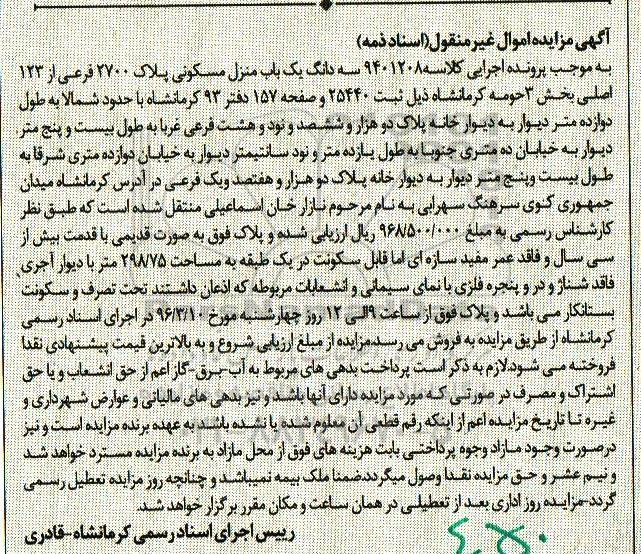 آگهی مزایده اموال غیر منقول(اسناد ذمه)
به موجب پرونده اجرایی کلاسه۹۴۰۱۲۰۸ سه دانگ یک باب منزل مسکونی پلاک ۲۷۰۰ فرعی از ۱۲۳
اصلی بخش ۳حومه کرمانشاه ذیل ثبت ۲۵۴۴۰ و صفحه ۱۵۷ دفتر ۹۳ کرمانشاه با حدود شمالا به طول
دوازده متر دیوار به دیوار خانه پلاک دو هزار و ششصد و نود و هشت فرعی غربا به طول بیست و پنج متر
دیوار به خیابان ده متری جنوبا به طول یازده متر و نود سانتیمتر دیوار به خیابان دوازده متری شرقا به
طول بیست وپنج متر دیوار به دیوار خانه پلاک دو هزار و هفتصد ویک فرعی در آدرس کرمانشاه میدان
جمهوری کوی سرهنگ سهرابی به نام مرحوم نازار خان اسماعیلی منتقل شده است که طبق نظر
کارشناس رسمی به مبلغ ۹۶۸/۵۰۰/۰۰۰ ریال ارزیابی شده و پلاک فوق به صورت قدیمی با قدمت بیش از
سی سال و فاقد عمر مفید سازه ای اما قابل سکونت در یک طبقه به مساحت ۲۹۸/۷۵ متر با دیوار آجری
فاقد شناژ و در و پنجره فلزی با نمای سیمانی و انشعابات مربوطه که اذعان داشتند تحت تصرف و سکونت
بستانکار می باشد و پلاک فوق از ساعت ۹الی ۱۲ روز چهارشنبه مورخ ۹۶/۳/۱۰ در اجرای اسناد رسمی
کرمانشاه از طریق مزایده به فروش می رسد.مزایده از مبلغ ارزیابی شروع و به بالاترین قیمت پیشنهادی نقدا
فروخته می شود.لازم به ذکر است پرداخت بدهی های مربوط به آب-برق-گاز اعم از حق انشعاب و یا حق
اشتراک و مصرف در صورتی که مورد مزایده دارای آنها باشد و نیز بدهی های مالیاتی و عوارض شهرداری و
غیره تا تاریخ مزایده اعم از اینکه رقم قطعی آن معلوم شده یا نشده باشد به عهده برنده مزایده است و نیز
درصورت وجود مازاد وجوه پرداختی بابت هزینه های فوق از محل مازاد به برنده مزایده مسترد خواهد شد
و نیم عشر و حق مزایده نقدا وصول میگردد.ضمنا ملک بیمه نمیباشد و چنانچه روز مزایده تعطیل رسمی
گردد-مزایده روز اداری بعد از تعطیلی در همان ساعت و مکان مقرر برگزار خواهد شد.
رییس اجرای اسناد رسمی کرمانشاه-قادری